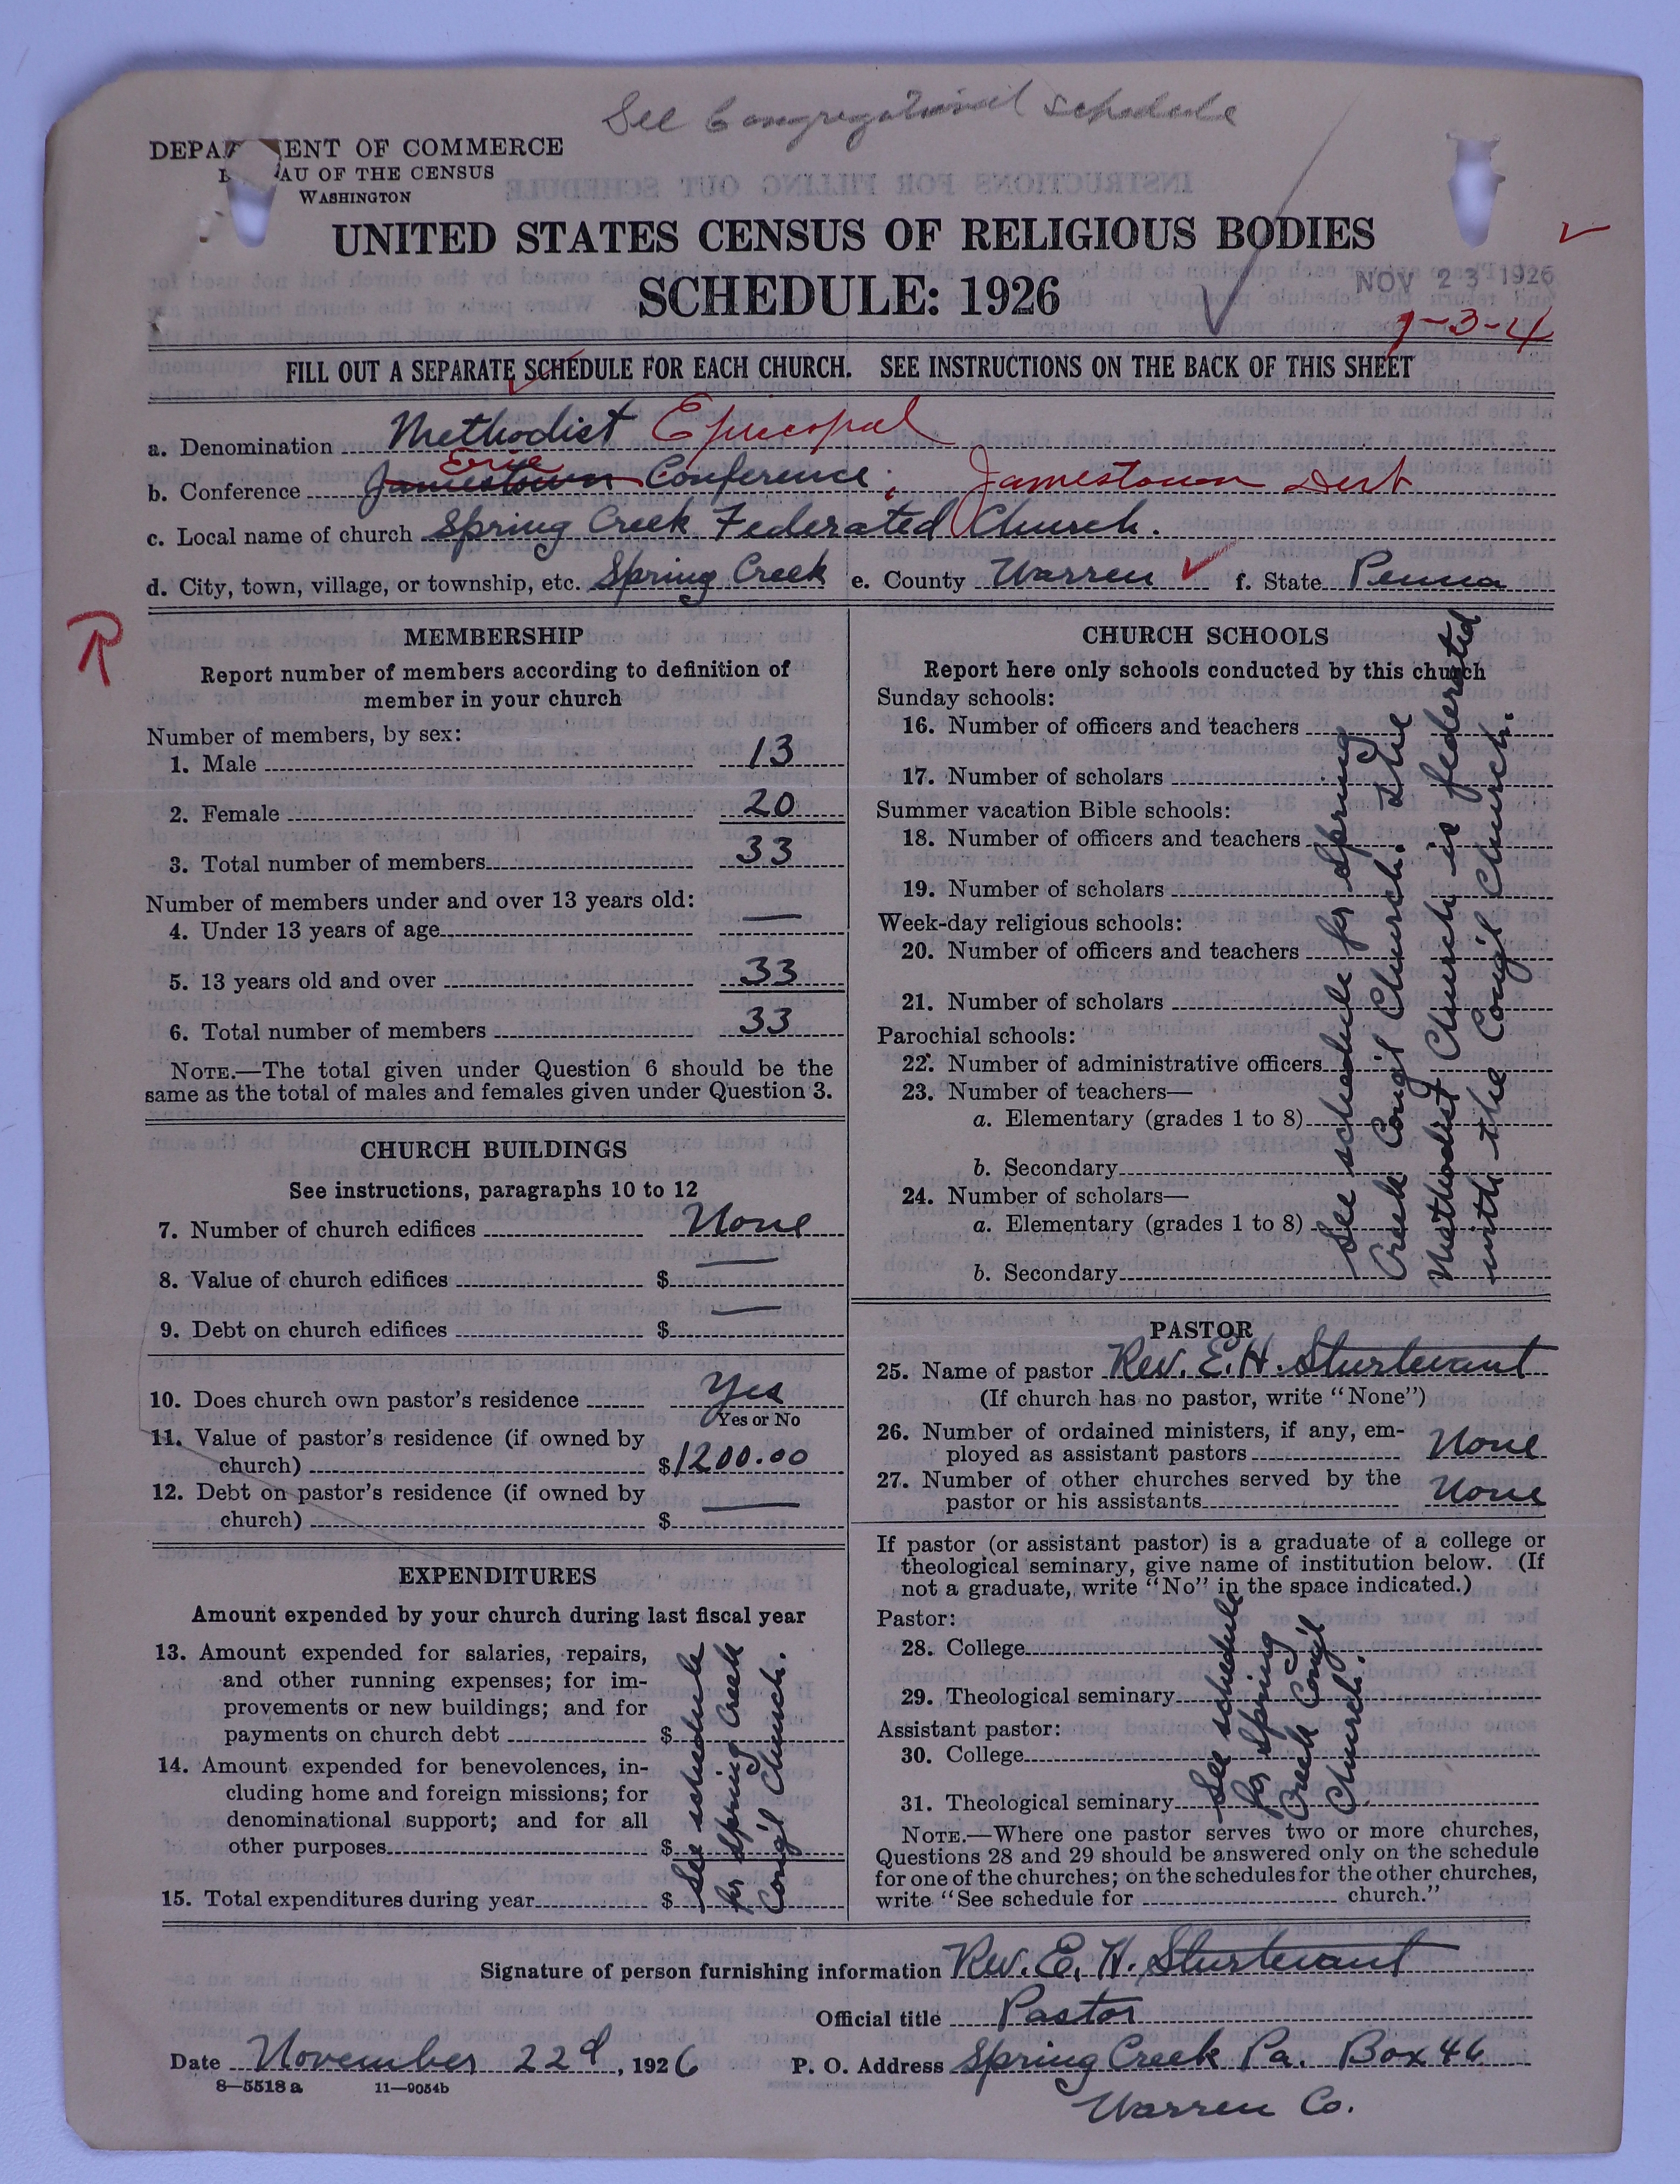 See Congregational schedule
DEPA ENT OF COMMERCE
AU OF THE CENSUS
WASHINGTON
UNITED STATES CENSUS OF RELIGIOUS BODIES
SCHEDULE: 1926
NOV 23 1926
1-3-4
FILL OUT A SEPARATE SCHEDULE FOR EACH CHURCH. SEE INSTRUCTIONS ON THE BACK OF THIS SHEET
a. Denomination Methodist Episcopal
Erie
b. Conference Jamestown Conference; Jamestown Dist
c. Local name of church Spring Creek Federated Church.
d. City, town, village, or township, etc. Spring Creek e. County Warren f. State Penna
R
MEMBERSHIP
Report number of members according to definition of
member in your church
Number of members, by sex:
1. Male 13
2. Female 20
3. Total number of members 33
Number of members under and over 13 years old:
4. Under 13 years of age —
5. 13 years old and over 33
6. Total number of members 33
NOTE.—The total given under Question 6 should be the
same as the total of males and females given under Question 3.
CHURCH BUILDINGS
See instructions, paragraphs 10 to 12
7. Number of church edifices None
8. Value of church edifices $ —
9. Debt on church edifices $ —
10. Does church own pastor's residence Yes
Yes or No
11. Value of pastor's residence (if owned by
church) $1200.00
12. Debt on pastor's residence (if owned by
church) $ —
EXPENDITURES
Amount expended by your church during last fiscal year
13. Amount expended for salaries, repairs,
and other running expenses; for im-
provements or new buildings; and for
payments on church debt $
14. Amount expended for benevolences, in-
cluding home and foreign missions; for
denominational support; and for all
other purposes $
15. Total expenditures during year $
See schedule
for Spring Creek
Cong'l Church.
CHURCH SCHOOLS
Report here only schools conducted by this church
Sunday schools:
16. Number of officers and teachers
17. Number of scholars
Summer vacation Bible schools:
18. Number of officers and teachers
19. Number of scholars
Week-day religious schools:
20. Number of officers and teachers
21. Number of scholars
Parochial schools:
22. Number of administrative officers
23. Number of teachers—
a. Elementary (grades 1 to 8)
b. Secondary
24. Number of scholars—
a. Elementary (grades 1 to 8)
b. Secondary
See schedule for Spring
Creek Cong'l Church. The
Methodist Church is federated
with the Cong'l Church.
PASTOR
25. Name of pastor Rev. E. H. Sturtevant
(If church has no pastor, write "None")
26. Number of ordained ministers, if any, em-
ployed as assistant pastors None
27. Number of other churches served by the
pastor or his assistants None
If pastor (or assistant pastor) is a graduate of a college or
theological seminary, give name of institution below. (If
not a graduate, write "No" in the space indicated.)
Pastor:
28. College
29. Theological seminary
Assistant pastor:
30. College
31. Theological seminary
See schedule
for Spring
Creek Cong'l
Church.
NOTE.—Where one pastor serves two or more churches,
Questions 28 and 29 should be answered only on the schedule
for one of the churches; on the schedules for the other churches,
write "See schedule for church."
Signature of person furnishing information Rev. E. H. Sturtevant
Official title Pastor
Date November 22d, 1926 P. O. Address Spring Creek Pa. Box 46
8—5518 a 11—9054b
Warren Co.